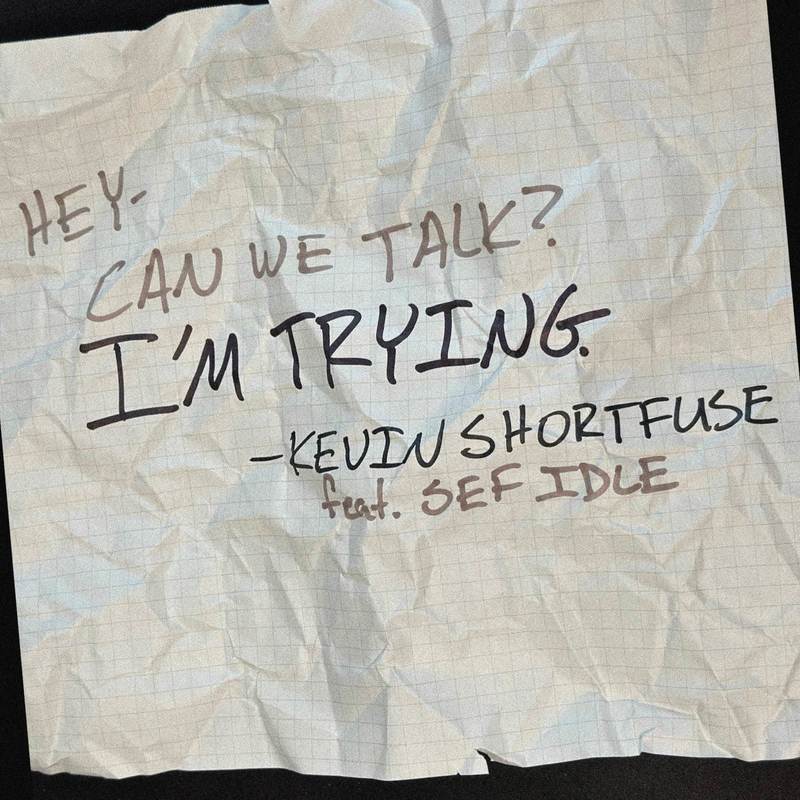 HEY-
CAN WE TALK?
I'M TRYING.
-KEVIN SHORTFUSE
feat. SEF IDLE